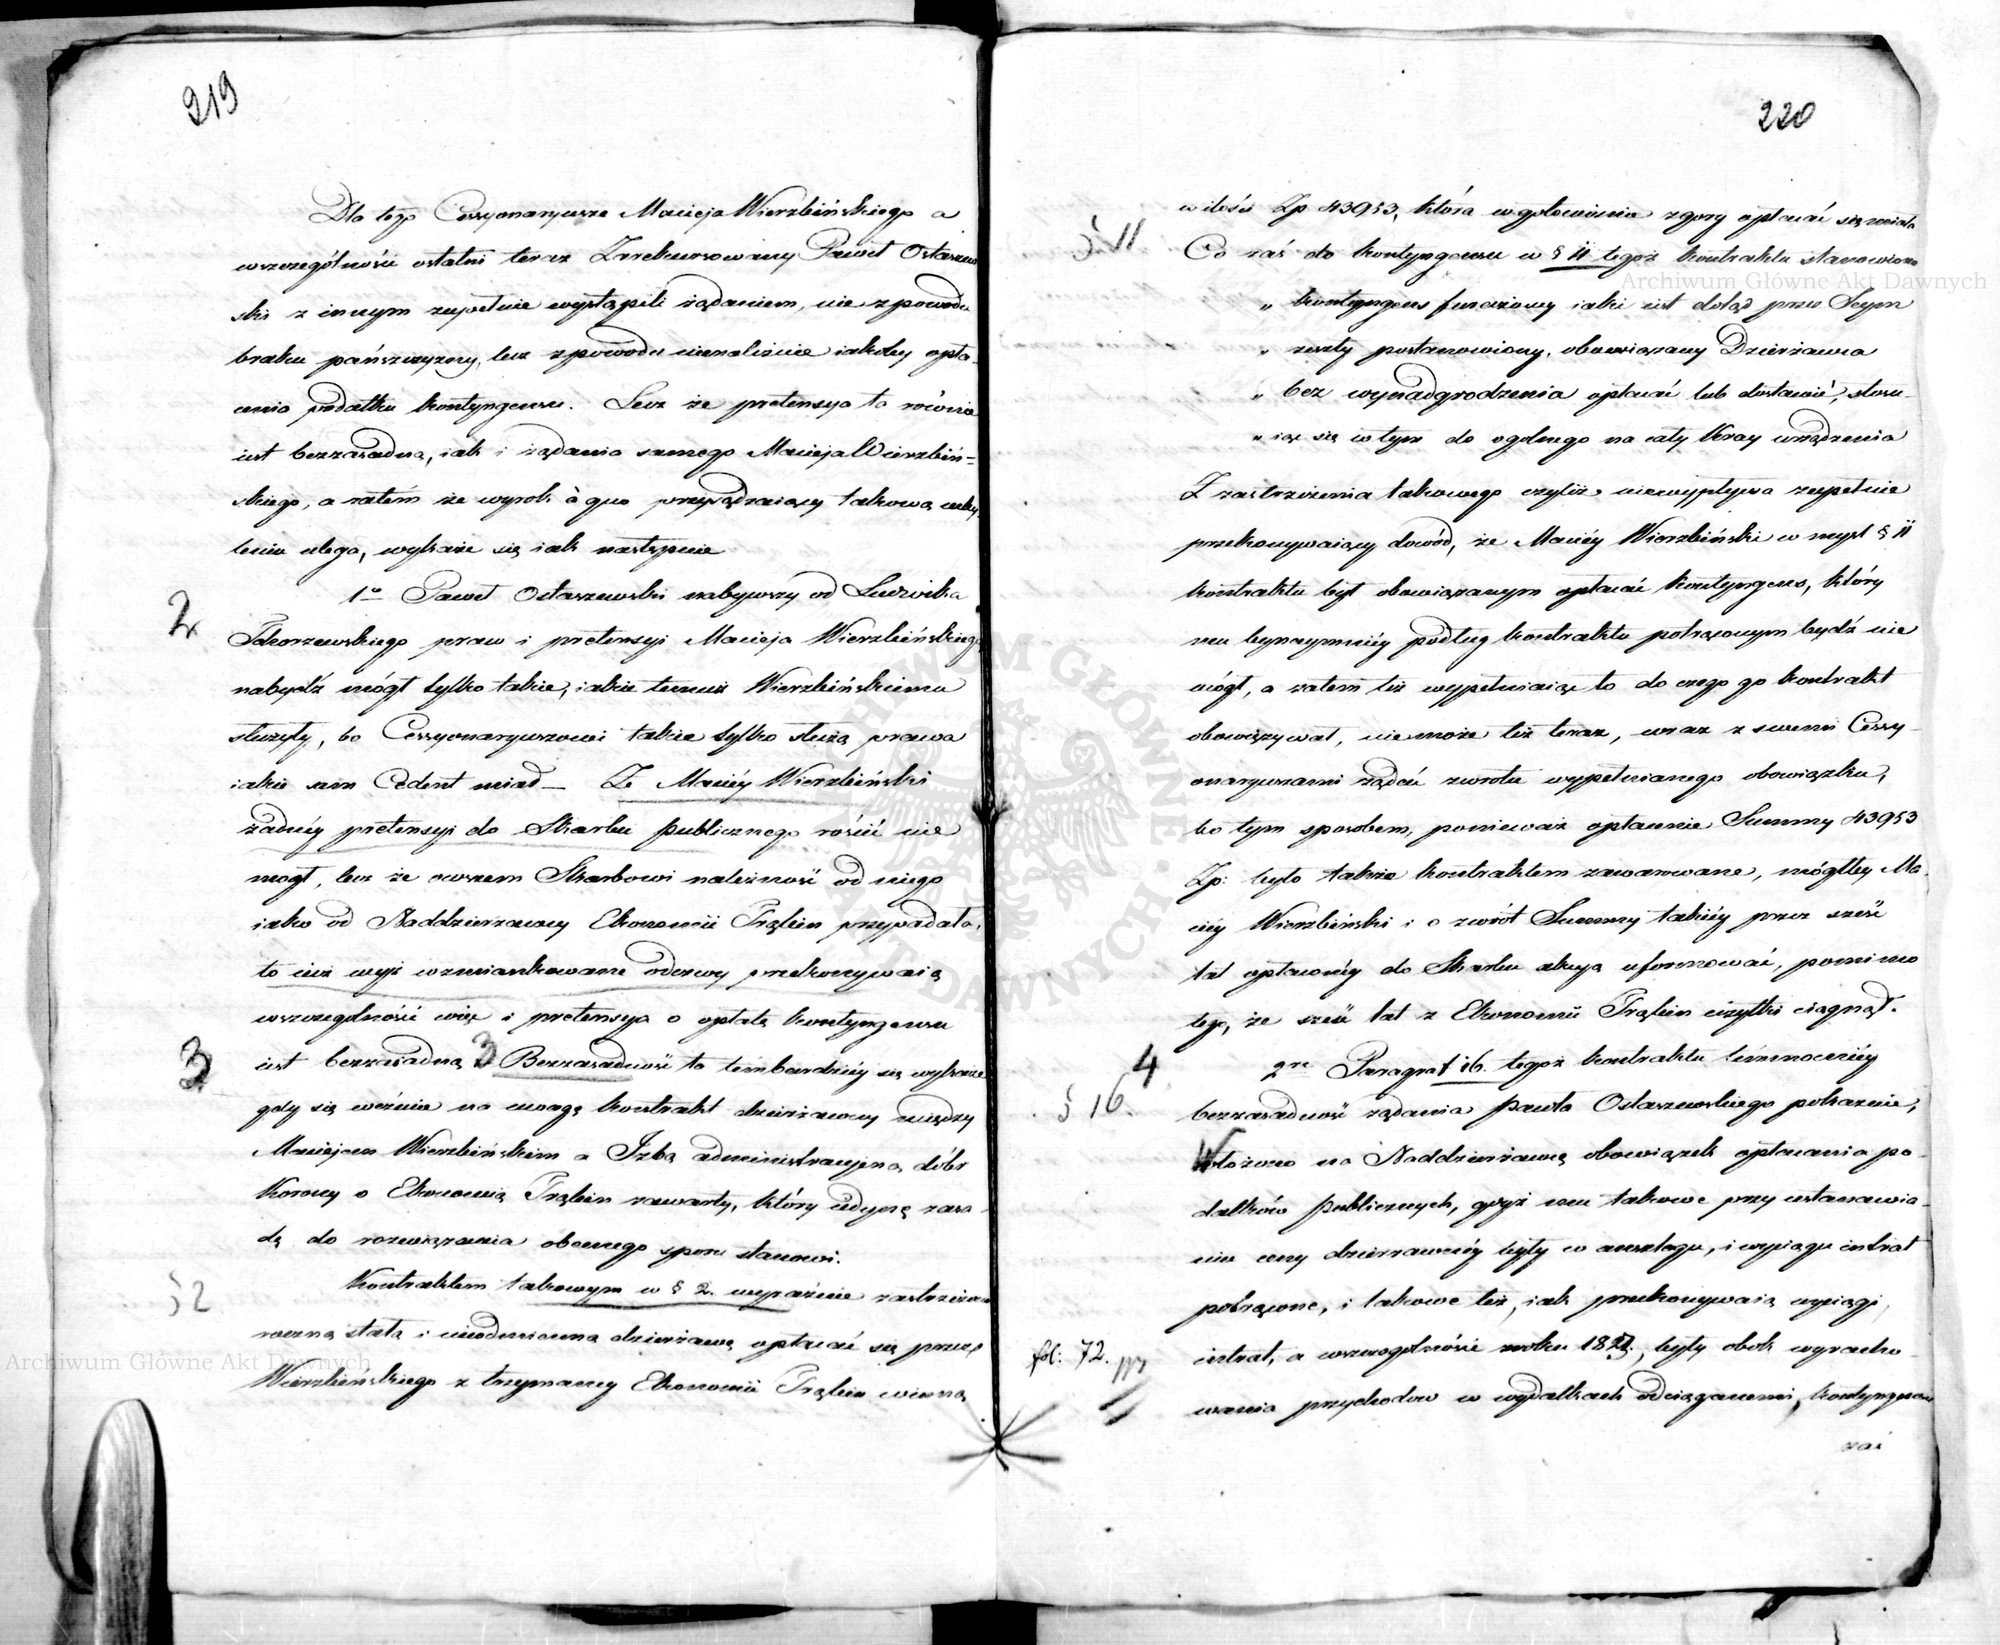 219
Dla tego Cessyonaryusze Macieja Wierzbińskiego a
wszczególności ostatni teraz Zarekursowany Paweł Ostaszew
ski z innym zupełnie wystąpili żądaniem, nie z powodu
braku pańszczyzny, lecz z powodu nienależnie iakoby opła-
cenia podatku kontyngensu. Lecz że pretensya ta równie
iest bezzasadną, iak i żądania samego Macieja Wierzbiń-
skiego, a zatem że wyrok à quo przysądzaiący takową uchy
leniu ulega, wykaże się iak następuie
2
1o Paweł Ostaszewski nabywszy od Ludwika
Tchorzewskiego praw i pretensyi Macieja Wierzbińskiego
nabydź mógł tylko takie, iakie temuż Wierzbińskiemu
służyły, bo Cessyonaryuszowi takie tylko służą prawa
iakie sam Cedent miał — Że Maciéy Wierzbiński
żadnéy pretensyi do Skarbu publicznego rościć nie
mógł, lecz że owszem Skarbowi należność od niego
iako od Naddzierżawcy Ekonomii Trąbin przypadała,
to iuż wyż wzmiankowane odezwy przekonywaią
wszczególności więc i pretensya o opłatę kontyngensu
3
iest bezzasadną 3 Bezzasadność ta tembardziéy się wykaże
gdy się weźmie na uwagę kontrakt dzierżawny między
Maciejem Wierzbińskim a Izbą administracyjną dóbr
Korony o Ekonomią Trąbin zawarty, który iedyną zasa-
dę do rozwiązania obecnego sporu stanowi.
§ 2
Kontraktem takowym w § 2. wyraźnie zastrzeżon
roczną stałą i nieodmienną dzierżawę opłacać się przez
Wierzbińskiego z trzymaney Ekonomii Trąbin winną
220
w ilości Zp 43953, która w gotowiznie z góry opłacać się miała
§ 11
Co zaś do kontyngensu w § 11 tegoż kontraktu stanowiono
„ kontyngens furażowy iaki iest dotąd przez Seym
„ zeszły postanowiony, obowiązany Dzierżawca
„ bez wynadgrodzenia opłacać lub dostawić, stosu-
„ iąc się w tym do ogólnego na cały Kray urządzenia
Z zastrzeżenia takowego czyliż niewypływa zupełnie
przekonywaiący dowód, że Maciéy Wierzbiński w myśl § 11
kontraktu był obowiązanym opłacać kontyngens, który
mu bynaymniéy podług kontraktu potrąconym bydź nie
mógł, a zatem też wypełniaiąc to do czego go kontrakt
obowiązywał, nie może też teraz, wraz z swemi Cessy-
onaryuszami żądać zwrotu wypełnianego obowiązku,
bo tym sposobem, ponieważ opłacenie Summy 43953
Zp: było także kontraktem zawarowane, mógłby Ma-
ciéy Wierzbiński i o zwrot Summy takiéy przez sześć
lat opłaconéy do Skarbu akcyą uformować, pomimo
tego, że sześć lat z Ekonomii Trąbin użytki ciągnął.
4
§ 16.
2re Paragraf 16. tegoż kontraktu tém mocniéy
bezzasadność żądania Pawła Ostaszewskiego pokazuie,
Włożono na Naddzierżawcę obowiązek opłacania po-
datków publicznych, gdyż mu takowe przy ustanawia-
niu ceny dzierżawnéy były w anszlagu, i wyciągu intrat
potrącone, i takowe też, iak przekonywaią wyciągi
fol: 72.
intrat, a wszczególności z roku 18, były obok wyracho-
wania przychodów w wydatkach odciąganemi, kontyngens
zaś